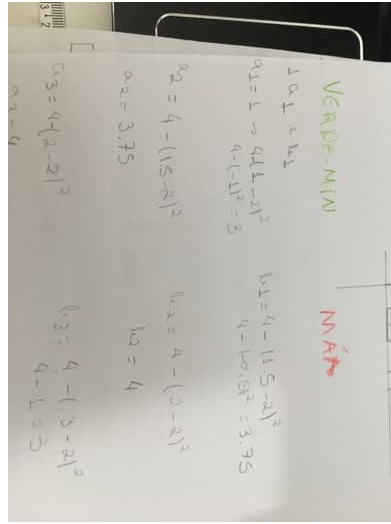 VERDE-MIN
MÁX
a1 = 1 → 4-(1-2)²
4-(-1)² = 3
h1 = 4 - (1.5-2)²
4-(-0.5)² = 3.75
a2 = 4 - (1.5-2)²
a2 = 3.75
h2 = 4 - (2-2)²
h2 = 4
a3 = 4-(2-2)²
a3 = 4
h3 = 4 - (3-2)²
4-1 = 3